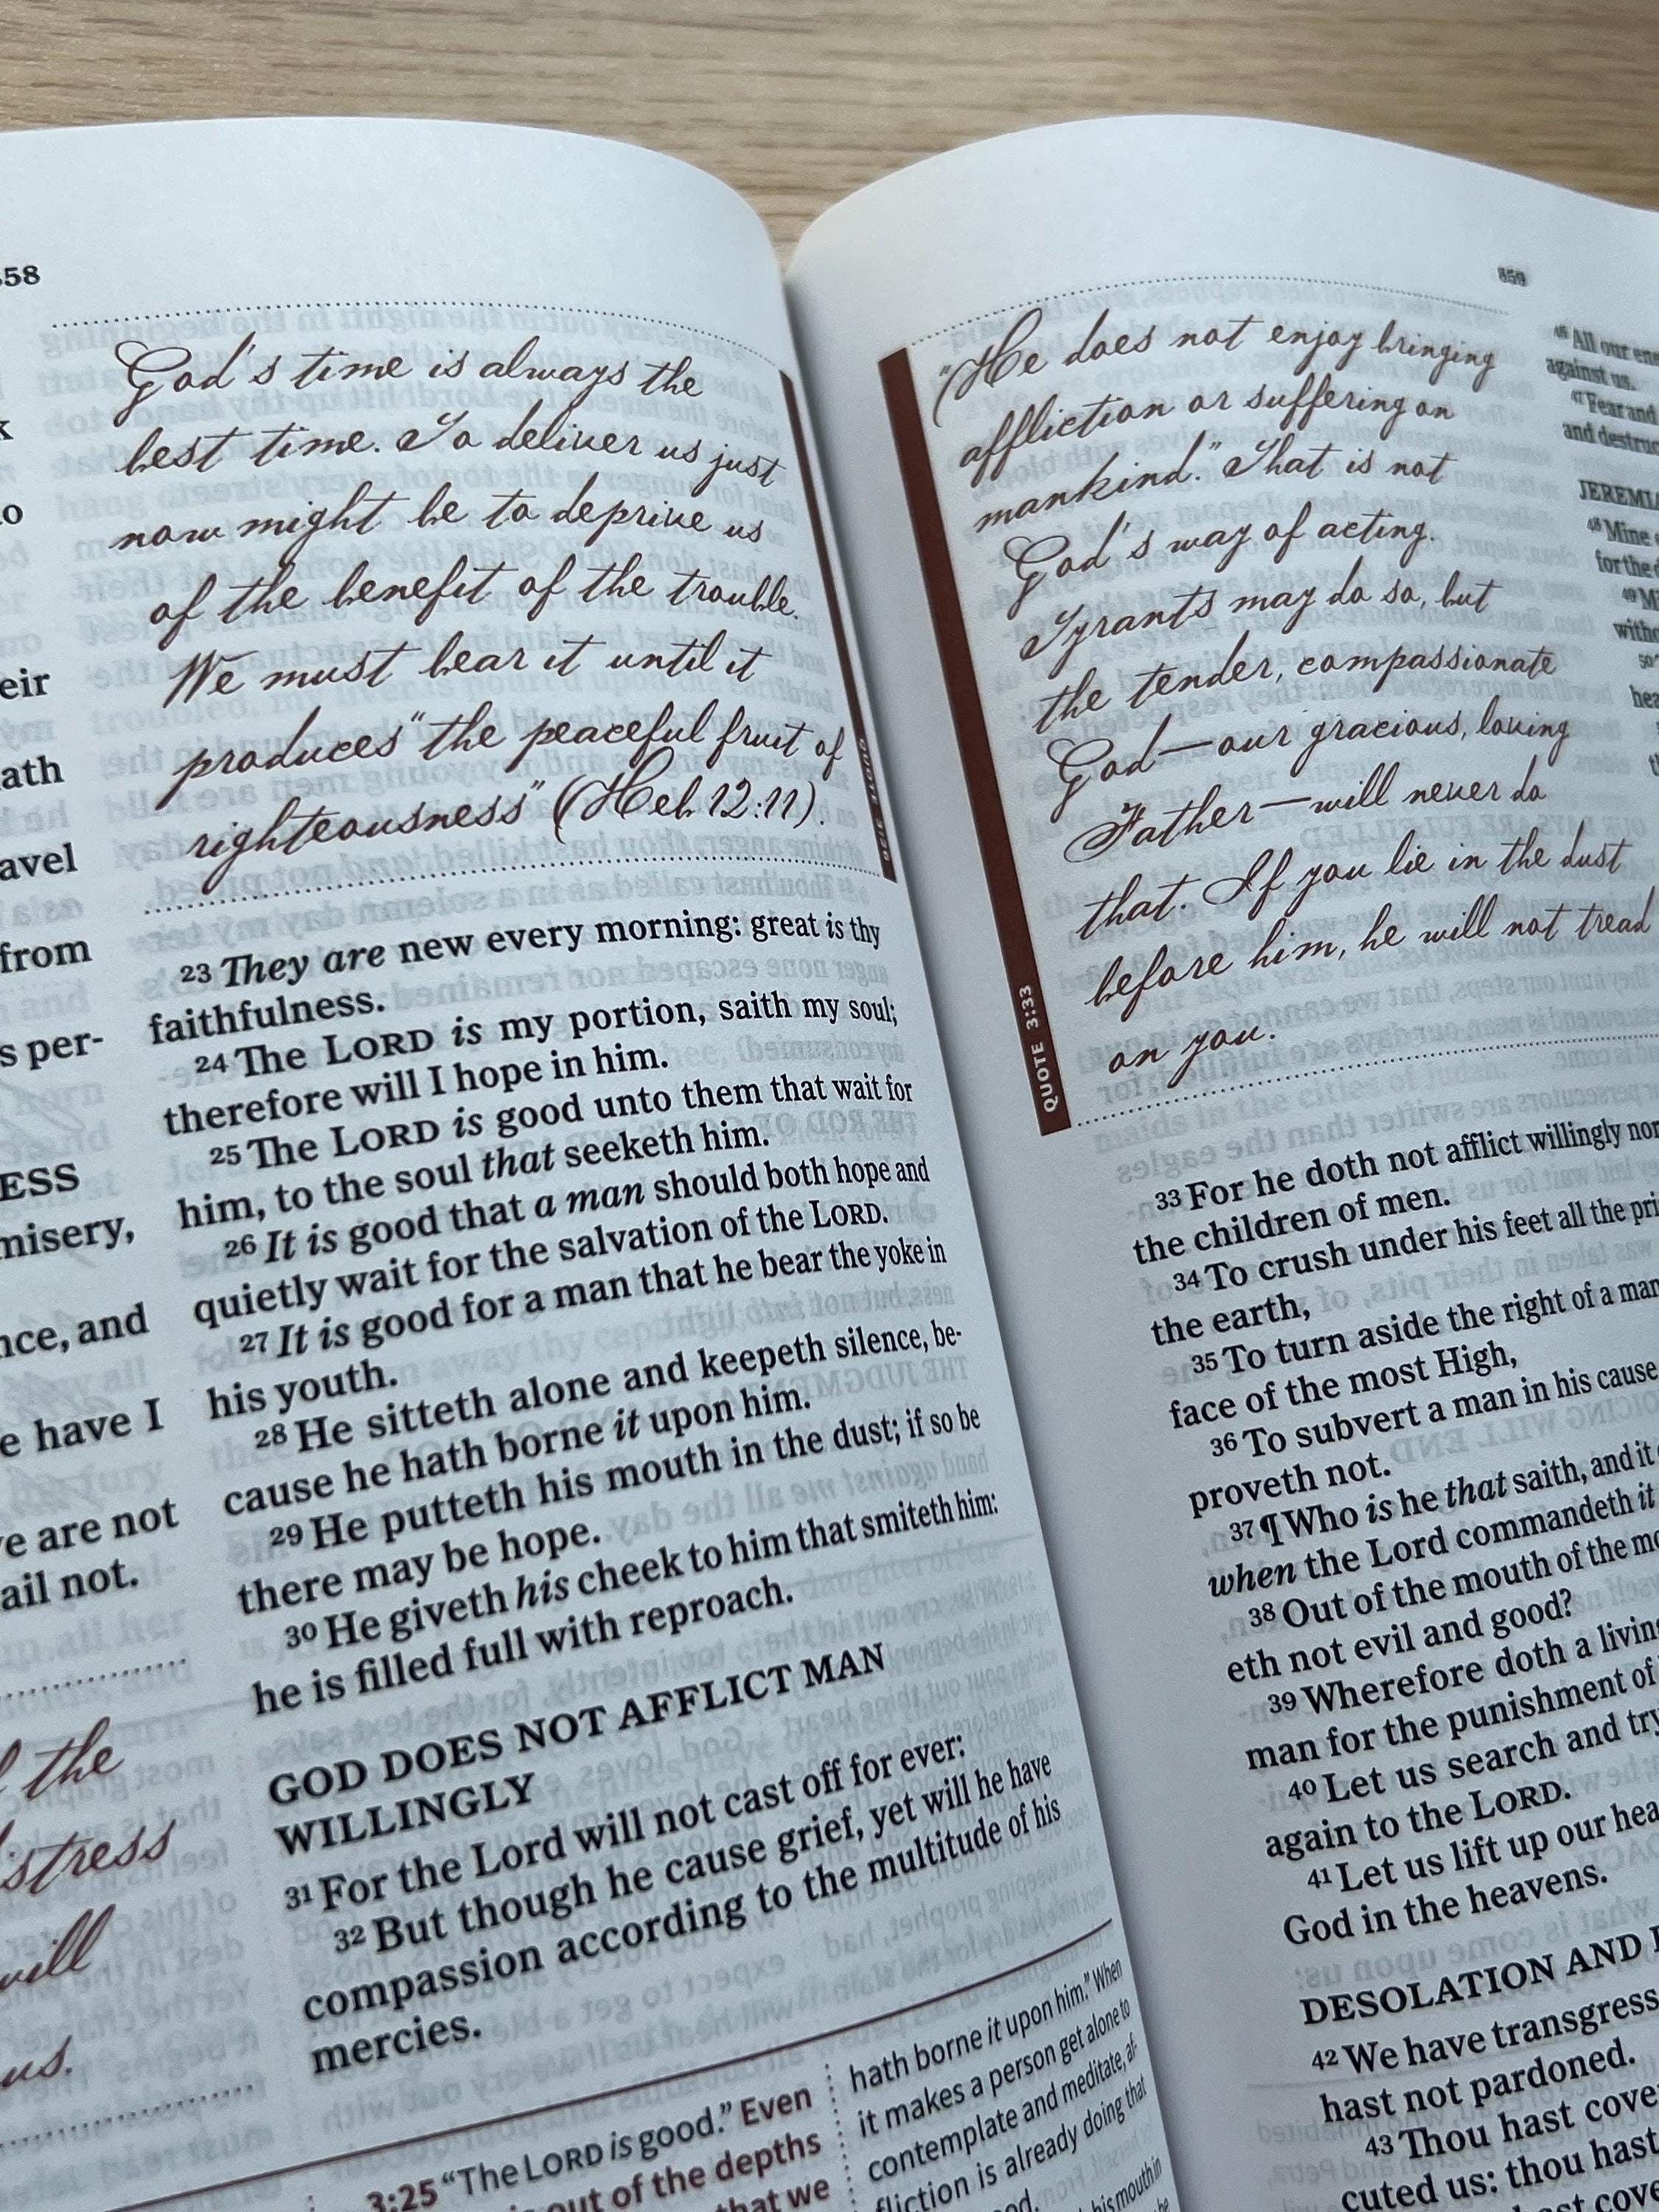 858
k
eir
ath
avel
from
s per-
ESS
misery,
nce, and
e have I
ve are not
ail not.
the
istress
will
us.
God's time is always the
best time. To deliver us just
now might be to deprive us
of the benefit of the trouble.
We must bear it until it
produces "the peaceful fruit of
righteousness" (Heb. 12:11).
QUOTE 3:26
23 They are new every morning: great is thy
faithfulness.
24 The LORD is my portion, saith my soul;
therefore will I hope in him.
25 The LORD is good unto them that wait for
him, to the soul that seeketh him.
26 It is good that a man should both hope and
quietly wait for the salvation of the LORD.
27 It is good for a man that he bear the yoke in
his youth.
28 He sitteth alone and keepeth silence, be-
cause he hath borne it upon him.
29 He putteth his mouth in the dust; if so be
there may be hope.
30 He giveth his cheek to him that smiteth him:
he is filled full with reproach.
GOD DOES NOT AFFLICT MAN
WILLINGLY
31 For the Lord will not cast off for ever:
32 But though he cause grief, yet will he have
compassion according to the multitude of his
mercies.
3:25 "The LORD is good." Even
out of the depths
that we
hath borne it upon him." When
it makes a person get alone to
contemplate and meditate, af-
fliction is already doing that
859
"He does not enjoy bringing
affliction or suffering on
mankind." That is not
God's way of acting.
Tyrants may do so, but
the tender, compassionate
God—our gracious, loving
Father—will never do
that. If you lie in the dust
before him, he will not tread
on you.
QUOTE 3:33
33 For he doth not afflict willingly nor
the children of men.
34 To crush under his feet all the pri
the earth,
35 To turn aside the right of a man
face of the most High,
36 To subvert a man in his cause
proveth not.
37 ¶Who is he that saith, and it
when the Lord commandeth it
38 Out of the mouth of the mo
eth not evil and good?
39 Wherefore doth a livin
man for the punishment of
40 Let us search and try
again to the LORD.
41 Let us lift up our hea
God in the heavens.
DESOLATION AND
42 We have transgress
hast not pardoned.
43 Thou hast cove
cuted us: thou hast
46 All our ene
against us.
47 Fear and
and destruc
JEREMIA
48 Mine
for the d
49 Mi
witho
50
hea